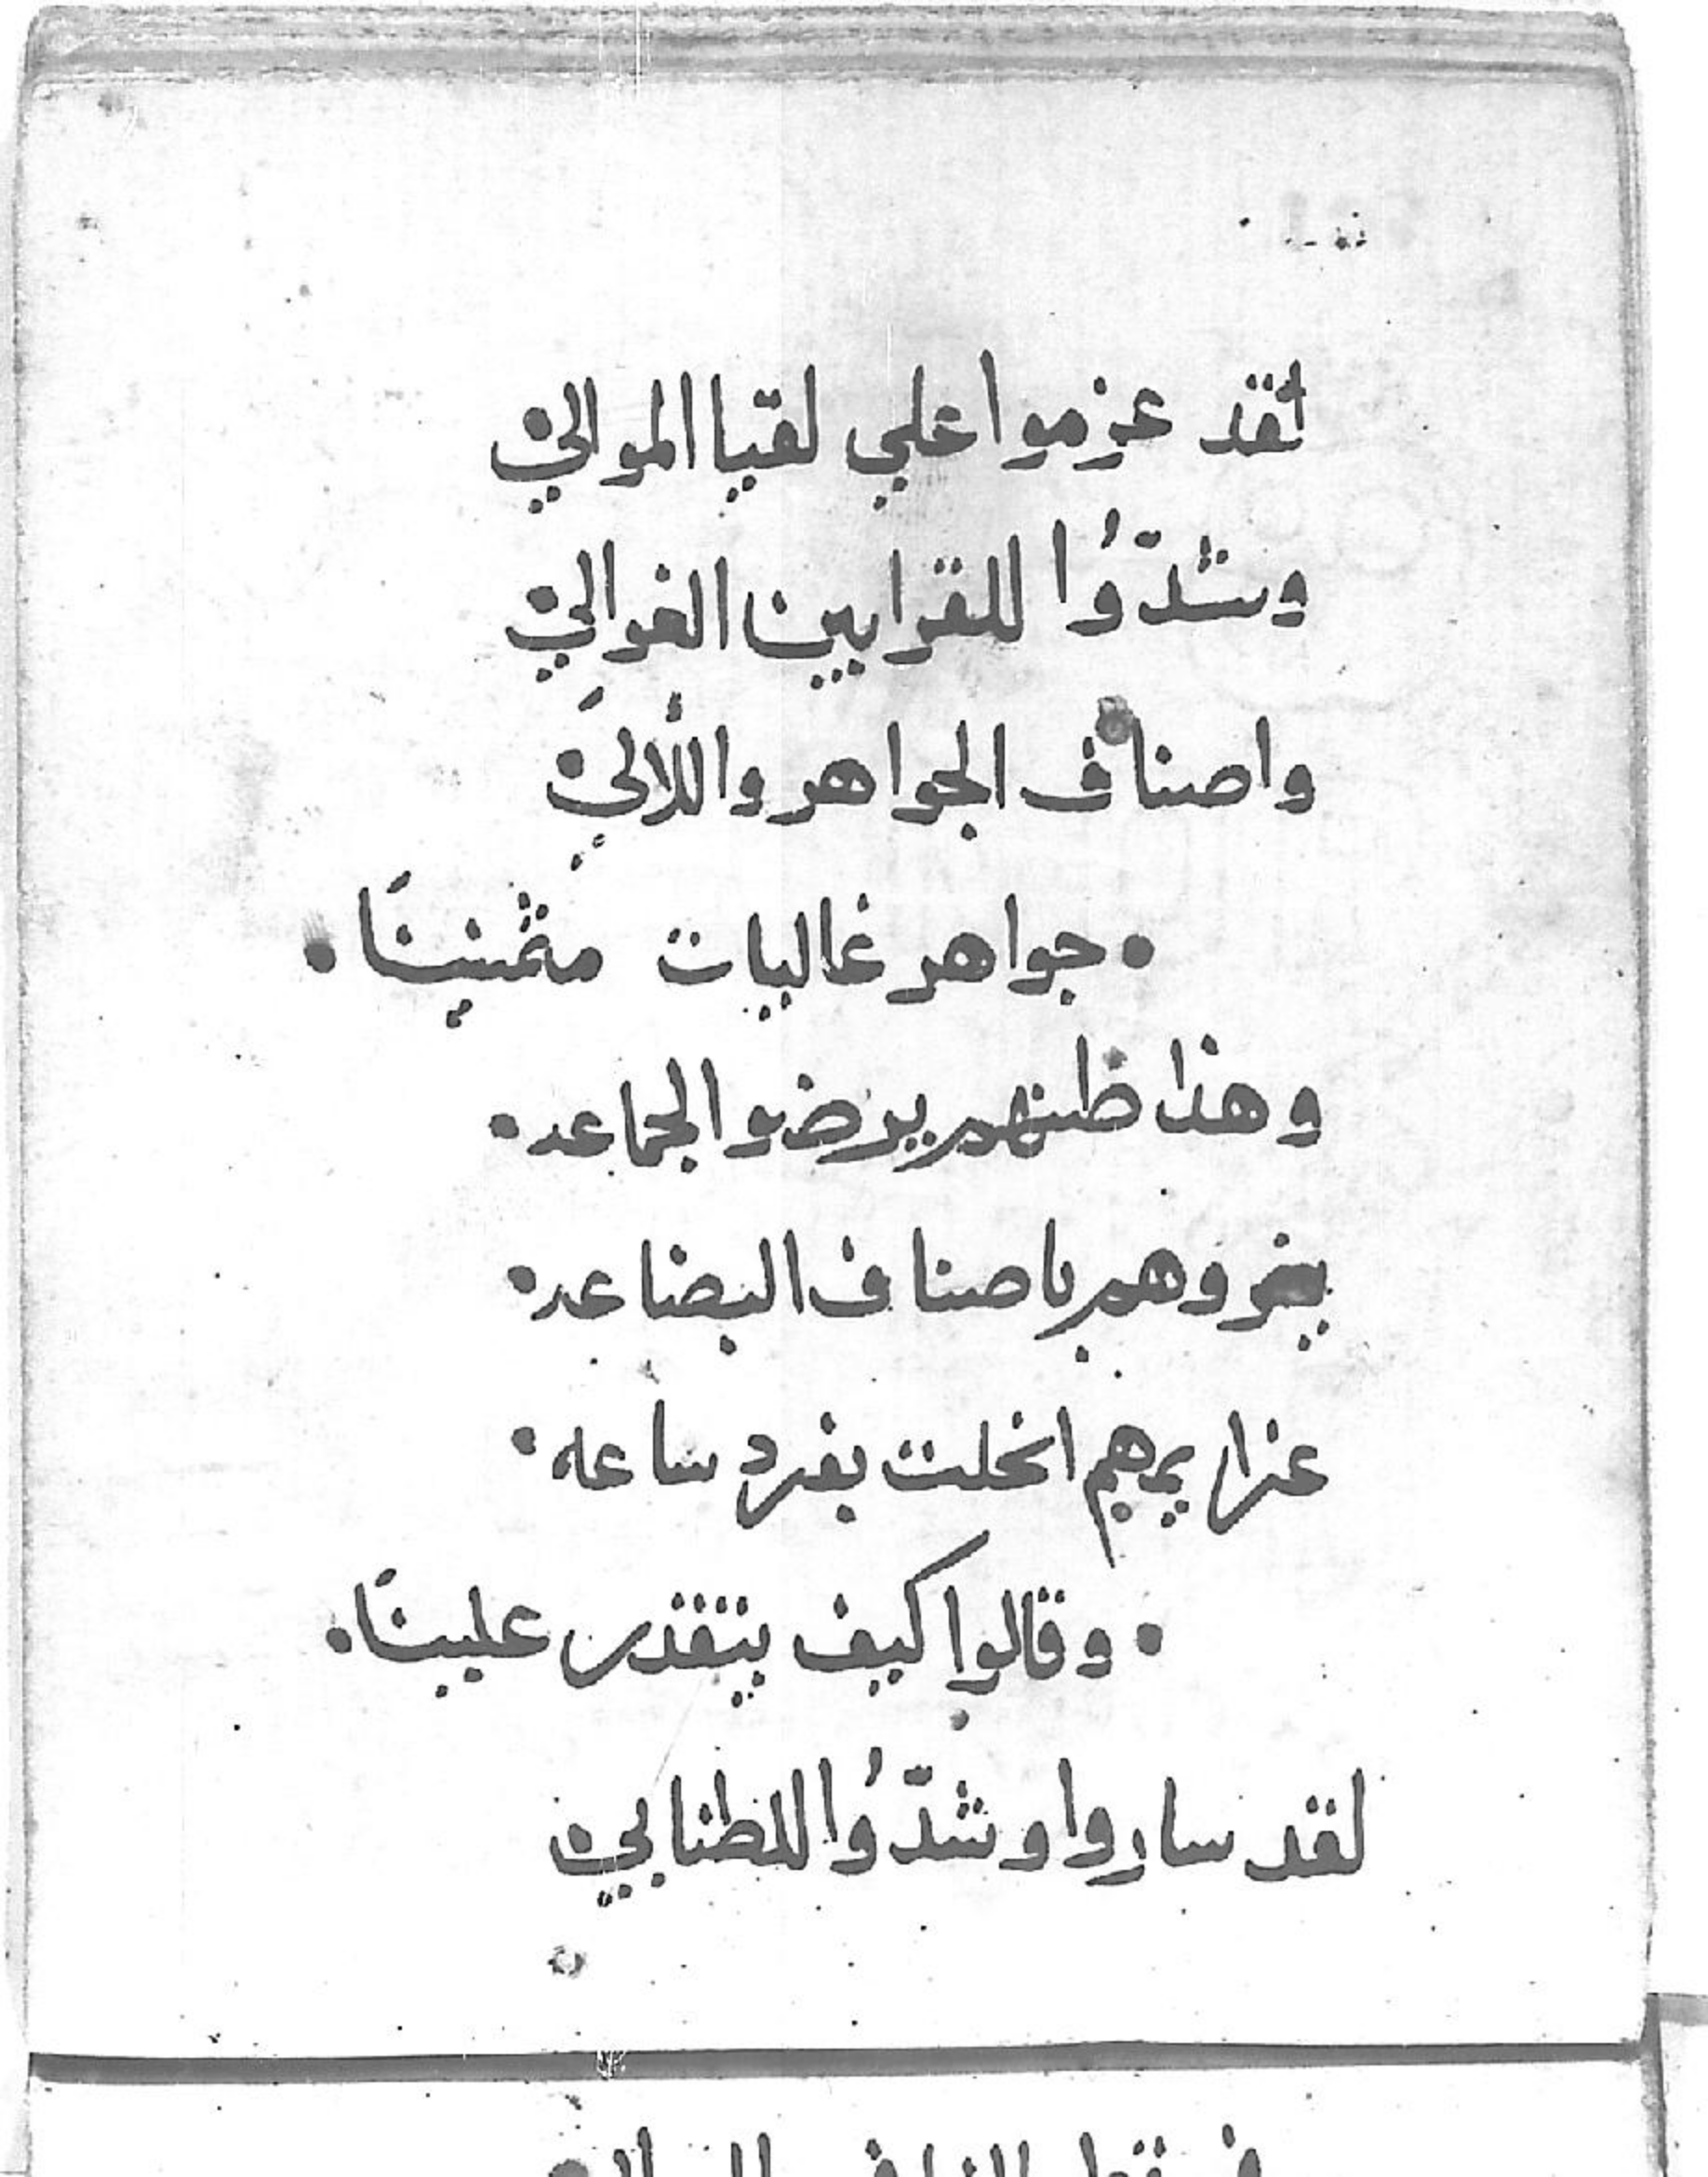 لقد عزموا علي لقيا الموالي
وشدّوُا للقرابين الغوالي
واصناف الجواهر واللّالَي
• جواهر غاليات مثمنينًا •
وهذا ظنهم يرضو الجماعه •
يغروهم باصناف البضاعه •
عزايمهم انحلت بفرد ساعه •
• وقالوا كيف يتقدر علينًا •
لقد ساروا وشدّوُا للطنابي